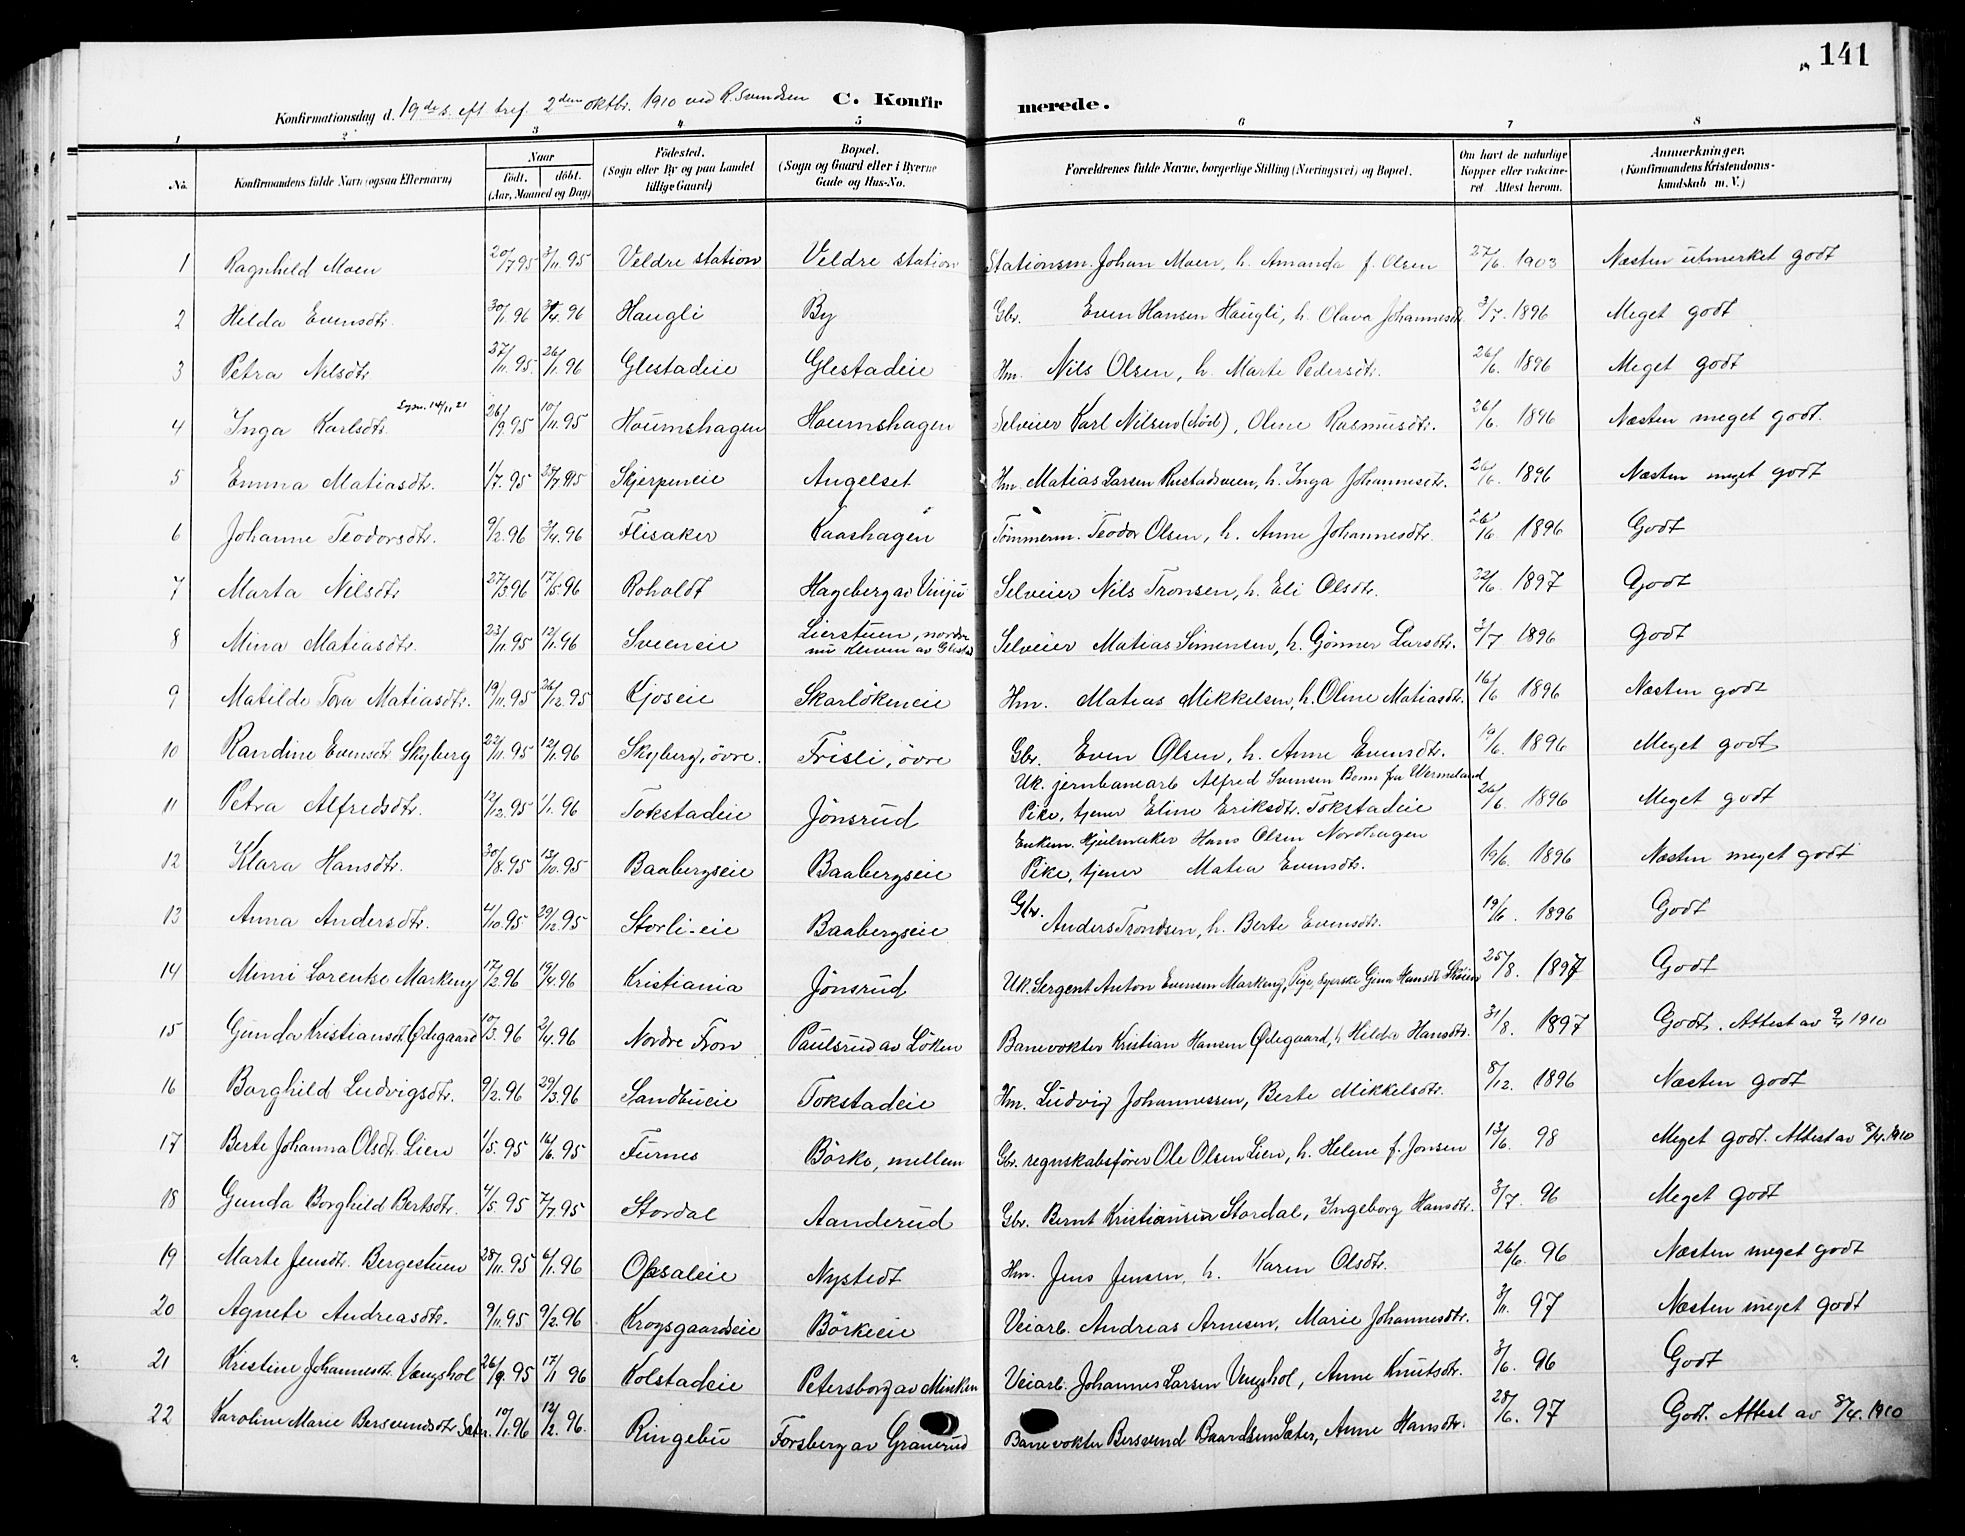 141
Konfirmationsdag d. 19de s. eft tref. 2den oktbr. 1910 ved R. Svendsen C. Konfirmerede.
1 2 3 4 5 6 7 8
No. Konfirmandens fulde Navn (ogsaa Efternavn) Naar födt. döbt. (Aar, Maaned og Dag) Födested. (Sogn eller By og paa Landet tillige Gaard) Bopæl. (Sogn og Gaard eller i Byerne Gade og Hus-No. Forældrenes fulde Navne, borgerlige Stilling (Næringsvei) og Bopæl. Om havt de naturlige Kopper eller vakcineret Attest herom. Anmærkninger. (Konfirmandens Kristendomskundskab m. V.)
1 Ragnhild Moen 20/7 95 3/11 95 Veldre station Veldre station Stationsm. Johan Moen, h. Amanda f. Olsen 27/6. 1903 Næsten utmerket godt
2 Hilda Evensdtr. 30/1 96 96 Haugli By Gbr. Even Hansen Haugli, h. Olava Johannesdtr. 3/7. 1896 Meget godt
3 Petra Nilsdtr 27/11 95. 26/1 96 Glestadeie Glestadeie Hm. Nils Olsen, h. Marte Pedersdtr. 26/6. 1896 Meget godt
4 Inga Karlsdtr. 14/11 21 26/9 95 10/11 95 Houmshagen Houmshagen Selveier Karl Nilsen (död), Oline Rasmusdtr. 26/6. 1896 Næsten meget godt.
5 Emma Matiasdtr. 1/7. 95 95 Skjerpeneie Angelset Hm. Matias Larsen Rustadsveen, h. Inga Johannesdtr. 26/6 1896 Næsten meget godt
6 Johanne Teodorsdtr. 9/2. 96 3/4. 96 Flisaker Kaashagen Tömmerm. Teodor Olsen, h. Anne Johannesdtr. 26/6 1896 Godt
7 Marta Nilsdtr 27/3 96 17/5 96 Roholdt Hageberg av Vinju Selveier Nils Tronsen, h. Eli Olsdtr. 22/6. 1897 Godt
8 Mina Matiasdtr. 23/11 95 12/1. 96 Sveeneie Lierstuen, nordre nu Kleven av Glestad Selveier Matias Simensen, h. Gönner Larsdtr. 3/7 1896 Godt
9 Matilde Tora Matiasdtr. 19/11. 95 26/12. 95 Kjoseie Skarlökeneie Hm. Matias Mikkelsen, h. Oline Matiasdtr. 16/6 1896 Næsten godt
10 Randine Evensdtr Skyberg 22/11. 95 12/1. 96 Skyberg, övre. Frisli, övre Gbr. Even Olsen, h. Anne Evensdtr. 19/6. 1896 Meget godt
11 Petra Alfredsdtr. 12/12. 95 1/1. 96 Tokstadeie Jönsrud Uk. jernbanearb Alfred Svensen Bonn fra Wermeland
Pike, tjener Eline Eriksdtr. Tokstadeie 26/6. 1896 Meget godt
12 Klara Hansdtr. 30/8. 95 13/10. 95 Baabergseie Baabergseie Enkem. Hjulmaker Hans Olsen Nordhagen
Pike, tjener Matea Evensdtr. 19/6. 1896 Næsten meget godt
13 Anna Andersdtr. 4/10. 95 29/12. 95 Storli-eie Baabergseie Gbr. Anders Trondsen, h. Berte Evensdtr. 19/6. 1896 Godt
14 Mimi Lorentse Markeng 17/2. 96 19/4. 96 Kristiania Jönsrud Uk. Sergent Anton Evensen Markeng, Pige, syerske Gina Hansdtr. Skoien 25/8. 1897 Godt
15 Gunda Kristiansdt. Ødegaard 10/3. 96 2/4. 96 Nordre Fron Paulsrud av Löken Banevokter Kristian Hansen Ødegaard, h Hilda Hansdtr. 31/8. 1897 Godt. Attest av 1910
16 Borghild Ludvigsdtr. 9/2. 96 29/3. 96 Sandbueie Tokstadeie Hm. Ludvig Johannessen, Berte Mikkelsdtr. 8/12. 1896 Næsten godt
17 Berte Johanna Olsdtr. Lien 1/5. 95 16/6. 95 Furnes Börke, mellem Gbr. regnskabsförer Ole Olsen Lien, h. Helene f. Jonsen 13/6. 98 Meget godt. Attest av 8/4. 1910
18 Gunda Borghild Berntsdtr. 4/5. 95 7/7. 95 Stordal Aanderud Gbr. Bernt Kristiansen Stordal, Ingeborg Hansdtr. 3/7. 96 Meget godt
19 Marte Jensdtr. Bergestuen 28/11. 95 6/1. 96 Opsaleie Nystedt Hm. Jens Jensen, h. Karen Olsdtr. 26/6. 96 Næsten meget godt
20 Agnete Andreasdtr. 9/11. 95 9/2. 96 Krogsgaardseie Börkeeie Veiarb. Andreas Arnesen, Marie Johannesdtr. 3/11. 97 Næsten meget godt
21 Kristine Johannesdtr. Vængshol 26/9. 95 17/1 96 Kolstadeie Petersborg av Minken Veiarb. Johannes Larsen Vengshol, Anne Knutsdtr. 3/6. 96 Godt
22 Karoline Marie Bersvendsdtr Sæter. 10/1. 96 12/2. 96. Ringebu Forsberg av Granerud Banevokter Bersvend Baardsen Sæter, Anne Hansdtr. 28/6. 97 Godt. Attest av 8/4. 1910